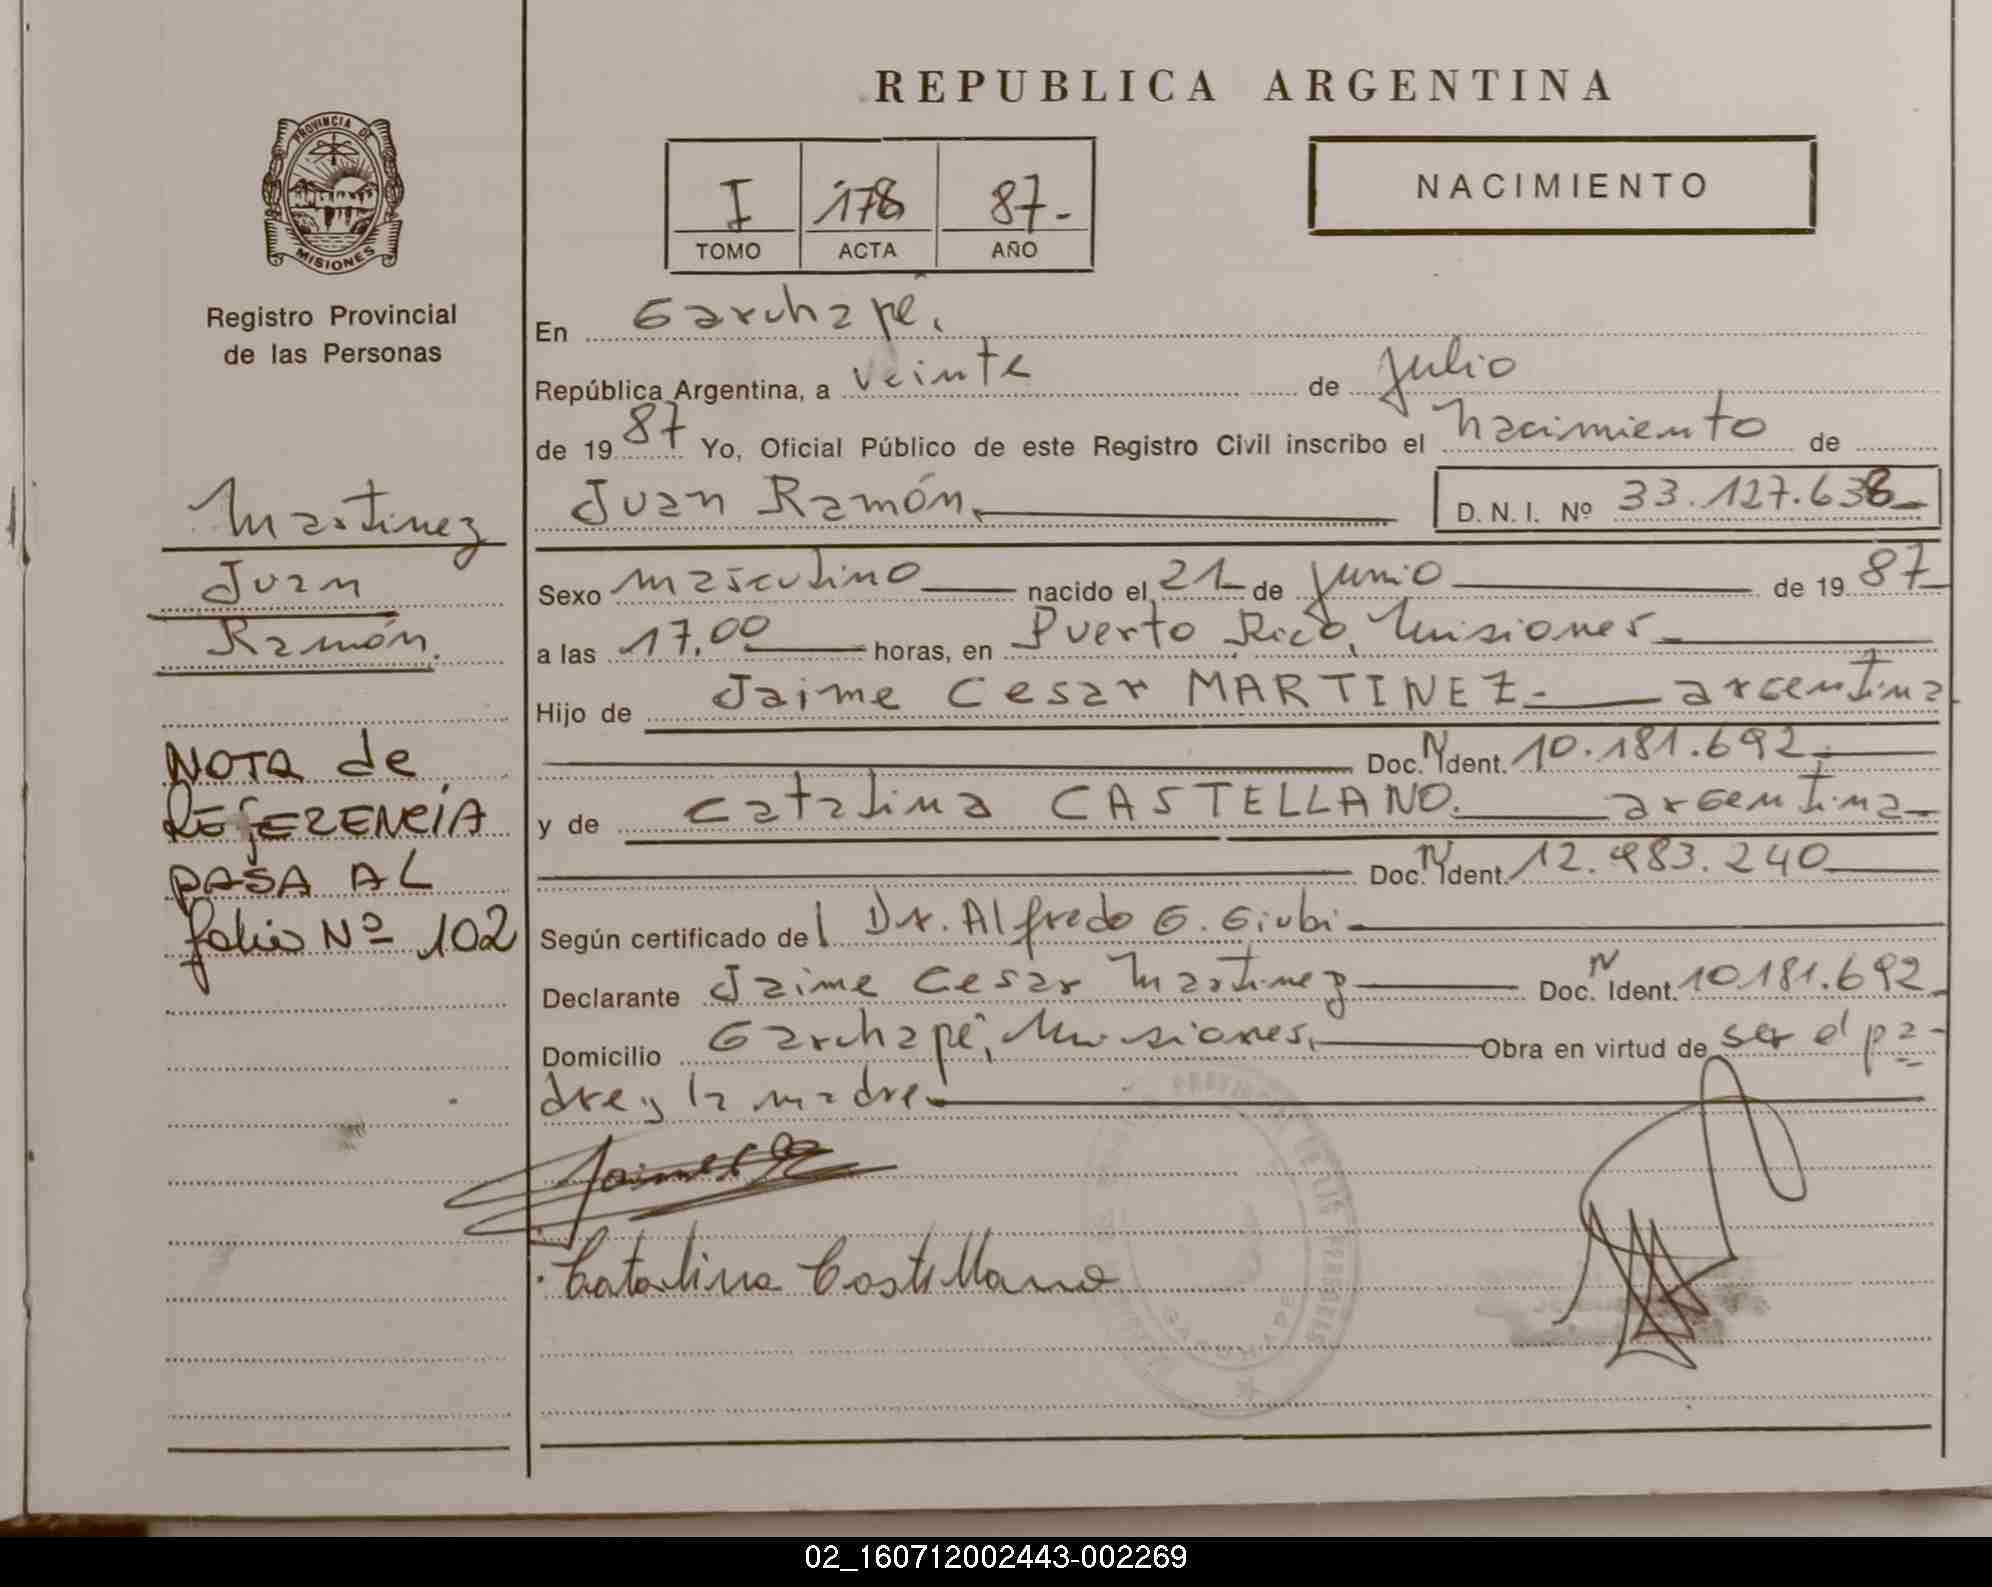 REPUBLICA ARGENTINA
PROVINCIA DE
MISIONES
Registro Provincial
de las Personas
I 178 87-
TOMO ACTA AÑO
NACIMIENTO
En Garuhapé.
República Argentina, a veinte de julio
de 19 87 Yo, Oficial Público de este Registro Civil inscribo el nacimiento de
Juan Ramón. D. N. I. Nº 33.127.638
Martinez
Juan
Ramón.
Sexo masculino nacido el 21 de junio de 19 87
a las 17,00 horas, en Puerto Rico, Misiones
Hijo de Jaime Cesar MARTINEZ. argentina
Doc. N Ident. 10.181.692
y de Catalina CASTELLANO. argentina
Doc. N Ident. 12.983.240
Según certificado del Dr. Alfredo G. Giubi
Declarante Jaime Cesar Martinez Doc. N Ident. 10.181.692
Domicilio Garuhapé, Misiones. Obra en virtud de ser el pa-
dre y la madre
NOTA de
REFERENCIA
PASA AL
folio Nº 102
Catalina Castellano
GARUHAPE
02_160712002443-002269